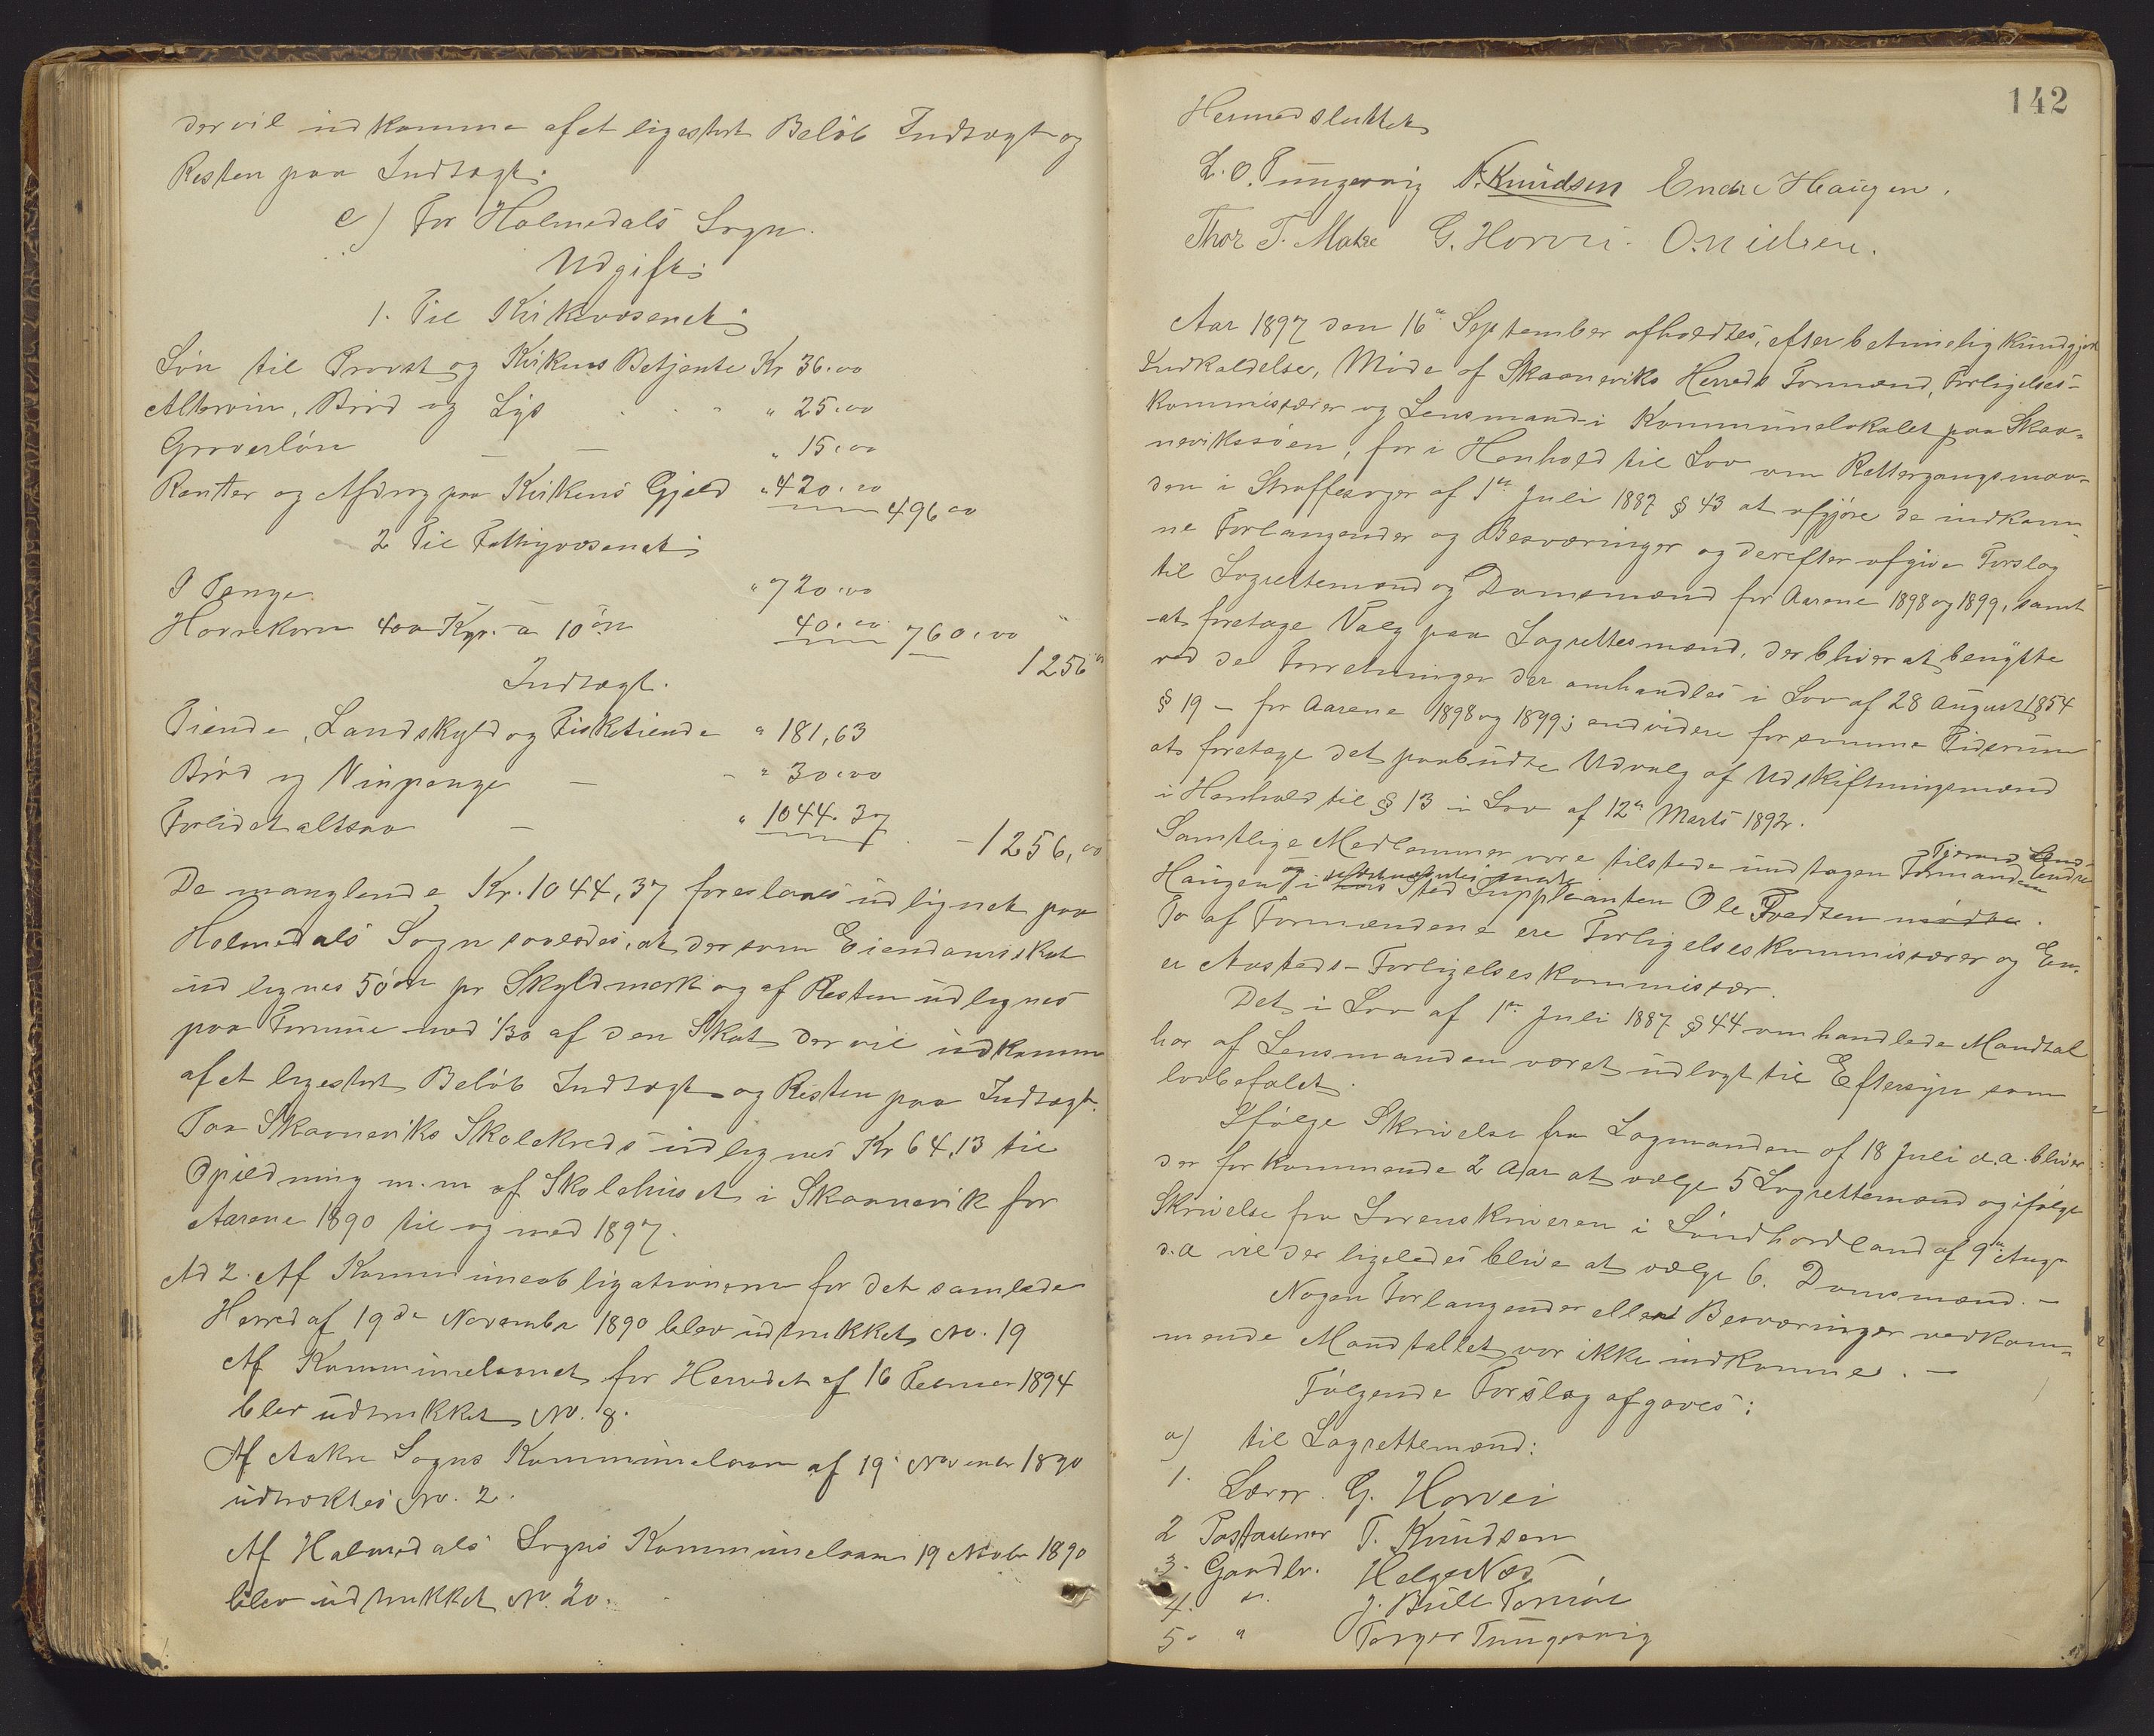 der vil indkomme af et ligestort Beløb Indtægt og
Resten paa Indtægt.
c) For Holmedals Sogn.
Udgift:
1. Til Kirkevæsenet:
Løn til Provst og Kirkens Betjente Kr 36.00
Altervin, Brød og Lys . . . " 25.00
Graverløn — — " 15.00
Renter og Afdrag paa Kirkens Gjeld " 420.00 496 00
2 Til Fattigvæsenet:
I Penge " 720.00
Havrekorn 400 Kgr. a 10 øre 40.00 760.00
1256 00
Indtægt.
Tiende, Landskyld og Fisketiende " 181,63
Brød og Vinpenge — - " 30.00
Forlidet altsaa — " 1044.37 - 1256,00
De manglende Kr. 1044,37 foreslaaes udlignet paa
Holmedals Sogn saaledes, at der som Eiendomsskat
udlignes 50 øre pr Skyldmark og af Resten udlignes
paa Formue med 1/30 af den Skat der vil indkomme
af et ligestort Beløb Indtægt og Resten paa Indtægt.
Paa Skaaneviks Skolekreds udlignes Kr 64,13 til
Opildning m.m af Skolehuset i Skaanevik for
Aarene 1890 til og med 1897.
Ad 2. Af Kommuneobligationerne for det samlede
Herred af 19de November 1890 blev udtrukket No. 19
Af Kommunelaanet for Herredet af 16 Februar 1894
blev udtrukket No. 8.
Af Aakre Sogns Kommunelaan af 19 November 1890
udtræktes No. 2.
Af Holmedals Sogns Kommunelaan 19 Novbr 1890
blev udtrukket No. 20.
142
Hermed sluttet
L. O. Tungesvig N. Knudsen Endre Haugen.
Thor T. Matre G. Horvei. O. Nielsen.
Aar 1897 den 16de September afholdtes, efter betimelig kundgjort
Indkaldelse, Møde af Skaaneviks Herreds Formænd, Forligelses-
kommissærer og Lensmand i Kommunelokalet paa Skaa-
nevikssøen, for i Henhold til Lov om Rettergangsmaa-
den i Straffesager af 1ste Juli 1887 § 43 at afgjøre de indkom-
ne Forlangender og Besværinger og derefter afgive Forslag
til Lagrettemænd og Domsmænd for Aarene 1898 og 1899, samt
at foretage Valg paa Lagrettesmænd, der bliver at benytte
ved de Forretninger der omhandles i Lov af 28 August 1854
§ 19 – for Aarene 1898 og 1899; endvidere for samme Tidsrum
at foretage det paabudte Udvalg af Udskiftningsmænd
i Henhold til § 13 i Lov af 12te Marts 1892.
Samtlige Medlemmer vare tilstede undtagen Formanden Endre
Haugen og i hans Sted Suppleanten Ole Tvedten mødte.
To af Formændene ere Forligelseskommissærer og En
er Aasteds-Forligelseskommissær.
Det i Lov af 1ste Juli 1887 § 44 omhandlede Mandtal
har af Lensmanden været udlagt til Eftersyn som
lovbefalet.
Ifølge Skrivelse fra Lagmanden af 18 Juli d.a. bliver
der for kommende 2 Aar at vælge 5 Lagrettemænd og ifølge
Skrivelse fra Sorenskriveren i Søndhordland af 9de Aug.
d.a vil der ligeledes blive at vælge 6. Domsmænd. –
Nogen Forlangender eller Besværinger vedkom-
mende Mandtallet var ikke indkomne. –
Følgende Forslag afgaves:
a) til Lagrettemænd:
1. Lærer. G. Horvei
2 Postaabner T. Knudsen
3. Gaardbr. Helge Næs
4. " J. Bull Tornøe
5. " Torger Tungesvig